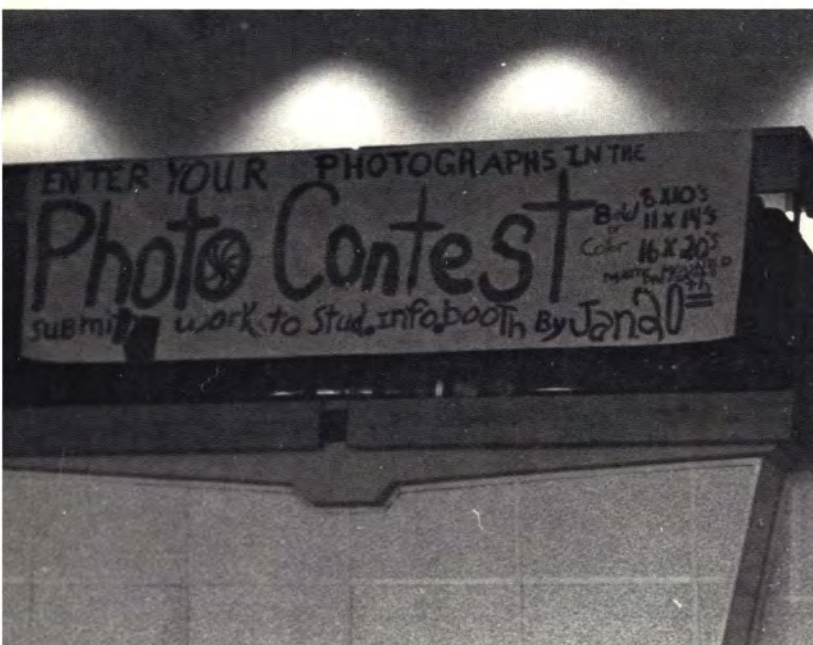 ENTER YOUR PHOTOGRAPHS IN THE
Photo Contest
B+W 8 X10's
or 11 X 14's
Color 16 X 20's
submit work to Stud. Info. booTh By Jan. 20th